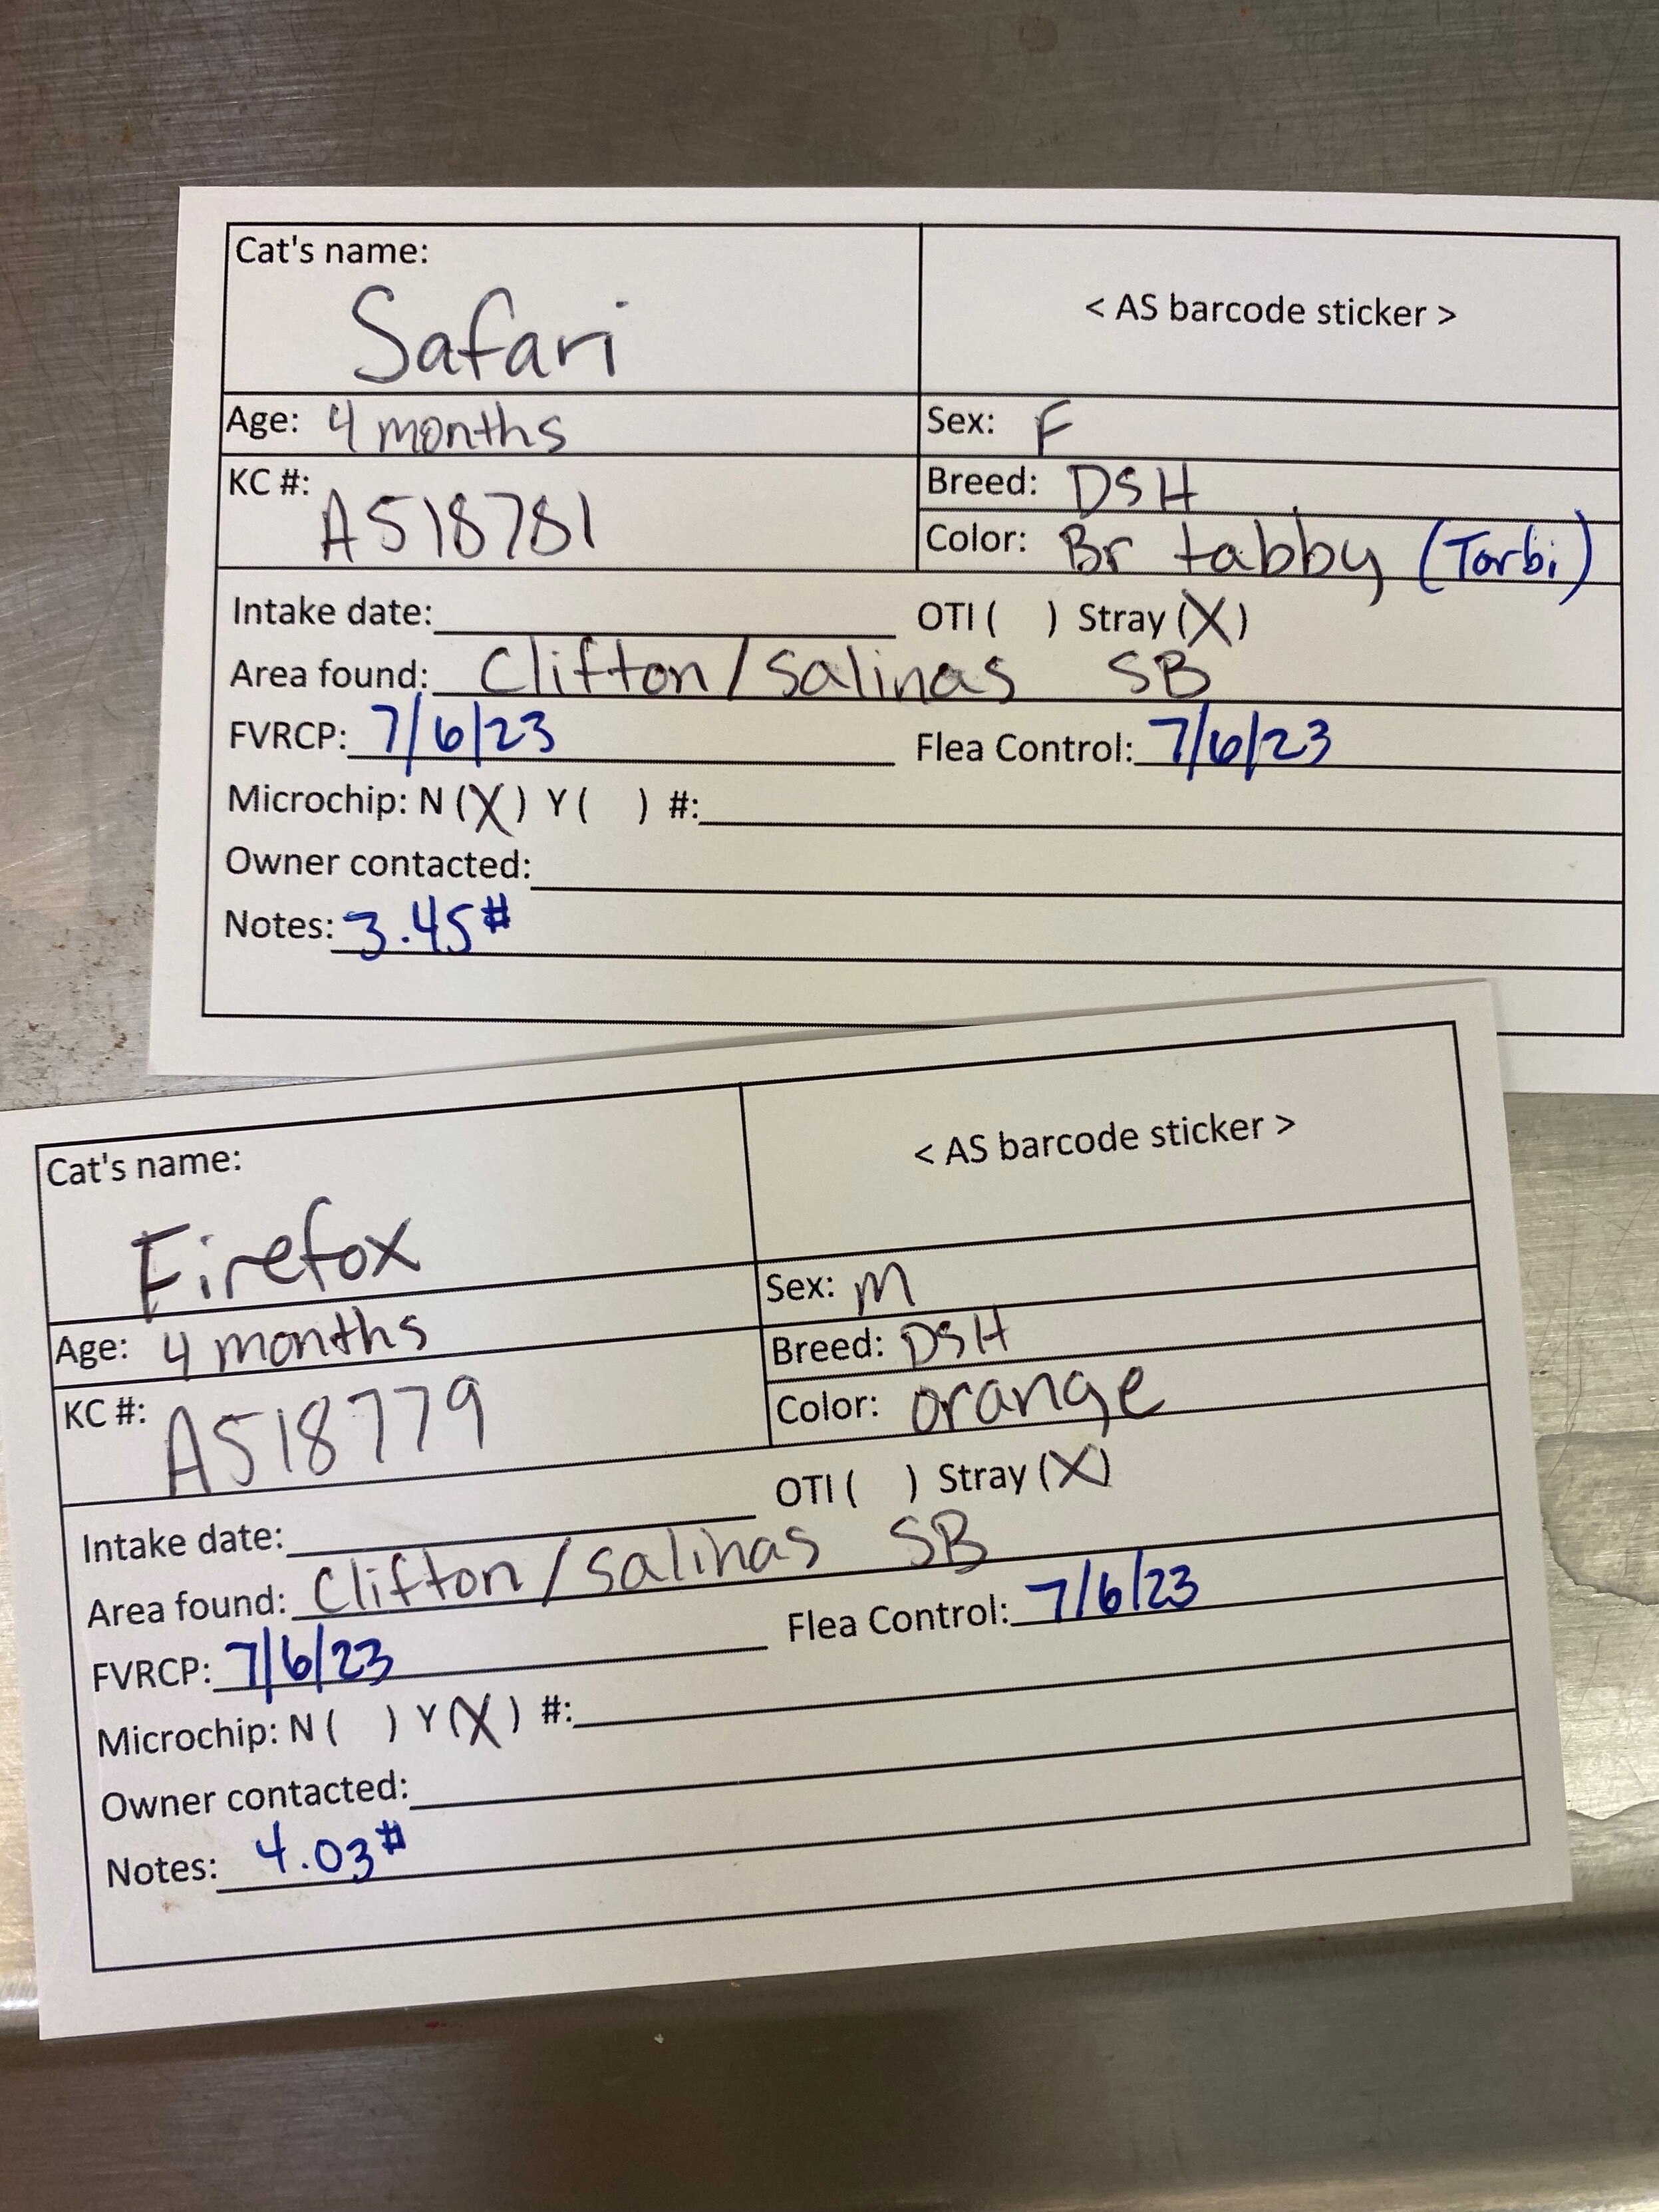 Cat's name:
Safari
< AS barcode sticker >
Age: 4 months
Sex: F
KC #: A518781
Breed: DSH
Color: Br tabby (Torbi)
Intake date: OTI ( ) Stray (X)
Area found: Clifton/Salinas SB
FVRCP: 7/6/23 Flea Control: 7/6/23
Microchip: N (X) Y ( ) #:
Owner contacted:
Notes: 3.45#
Cat's name:
Firefox
< AS barcode sticker >
Age: 4 months
Sex: M
KC #: A518779
Breed: DSH
Color: orange
Intake date: OTI ( ) Stray (X)
Area found: Clifton/Salinas SB
FVRCP: 7/6/23 Flea Control: 7/6/23
Microchip: N ( ) Y (X) #:
Owner contacted:
Notes: 4.03#